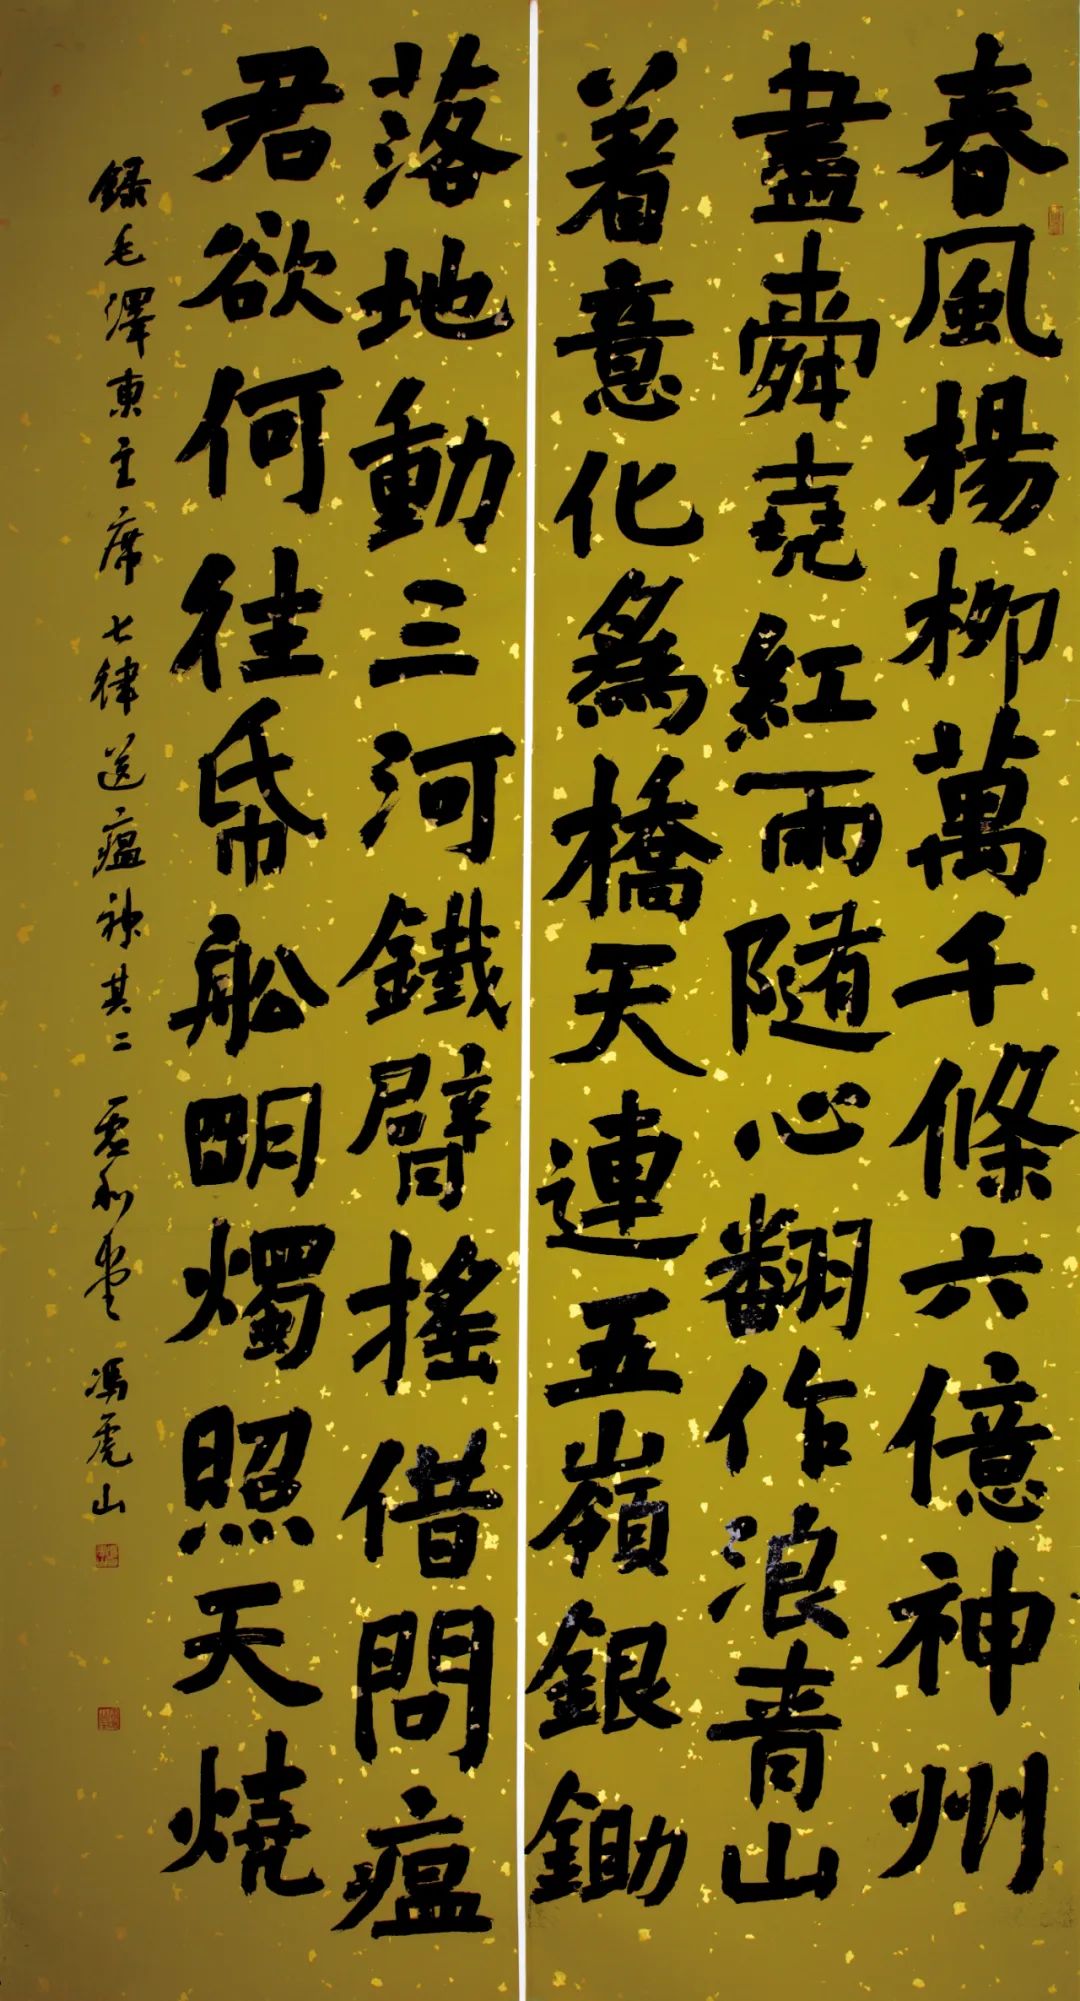 春風楊柳萬千條六億神州
盡舜堯紅雨隨心翻作浪青山
着意化為橋天連五嶺銀鋤
落地動三河鐵臂搖借問瘟
君欲何往帋船明燭照天燒
錄毛澤東主席七律送瘟神其二 馮虎山